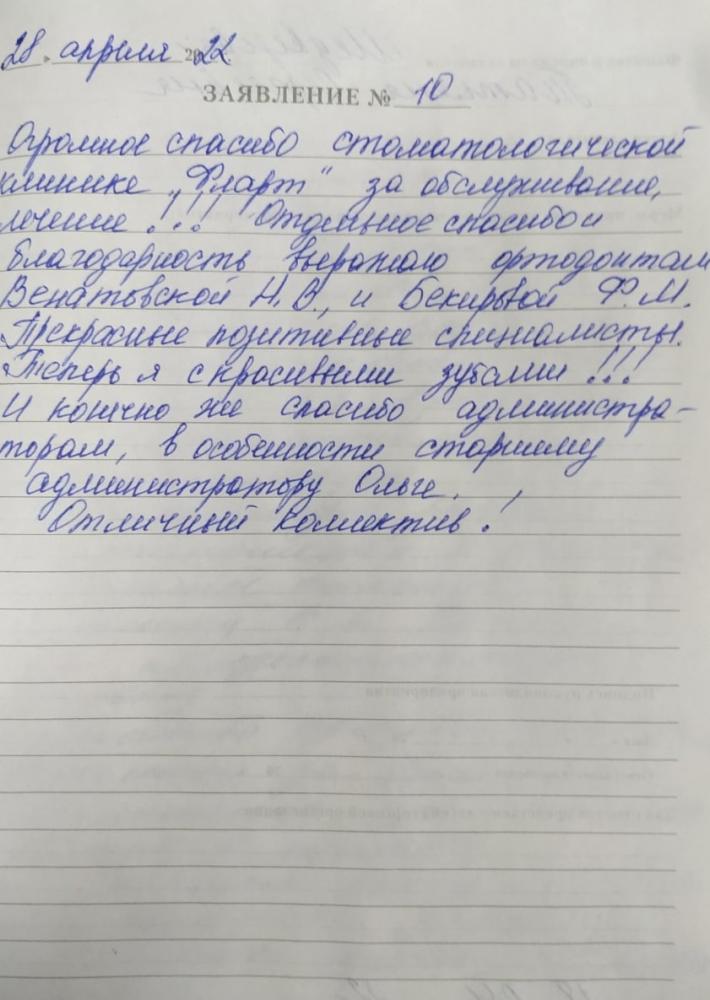 28 апреля 2022
ЗАЯВЛЕНИЕ № 10
Огромное спасибо стоматологической
клинике „Фларт" за обслуживание,
лечение!!! Отдельное спасибо и
благодарность выражаю ортодонтам
Венатовской Н.В., и Бекировой Ф.М.
Прекрасные позитивные специалисты.
Теперь я с красивыми зубами!!!
И конечно же спасибо администра-
торам, в особенности старшему
администратору Ольге.
Отличный коллектив!